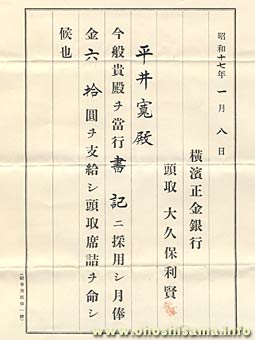 昭和十七年一月八日
橫濱正金銀行
頭取 大久保利賢
平井寬殿
今般貴殿ヲ當行書記ニ採用シ月俸
金六拾圓ヲ支給シ頭取席詰ヲ命シ
候也
www.ohoshisama.info